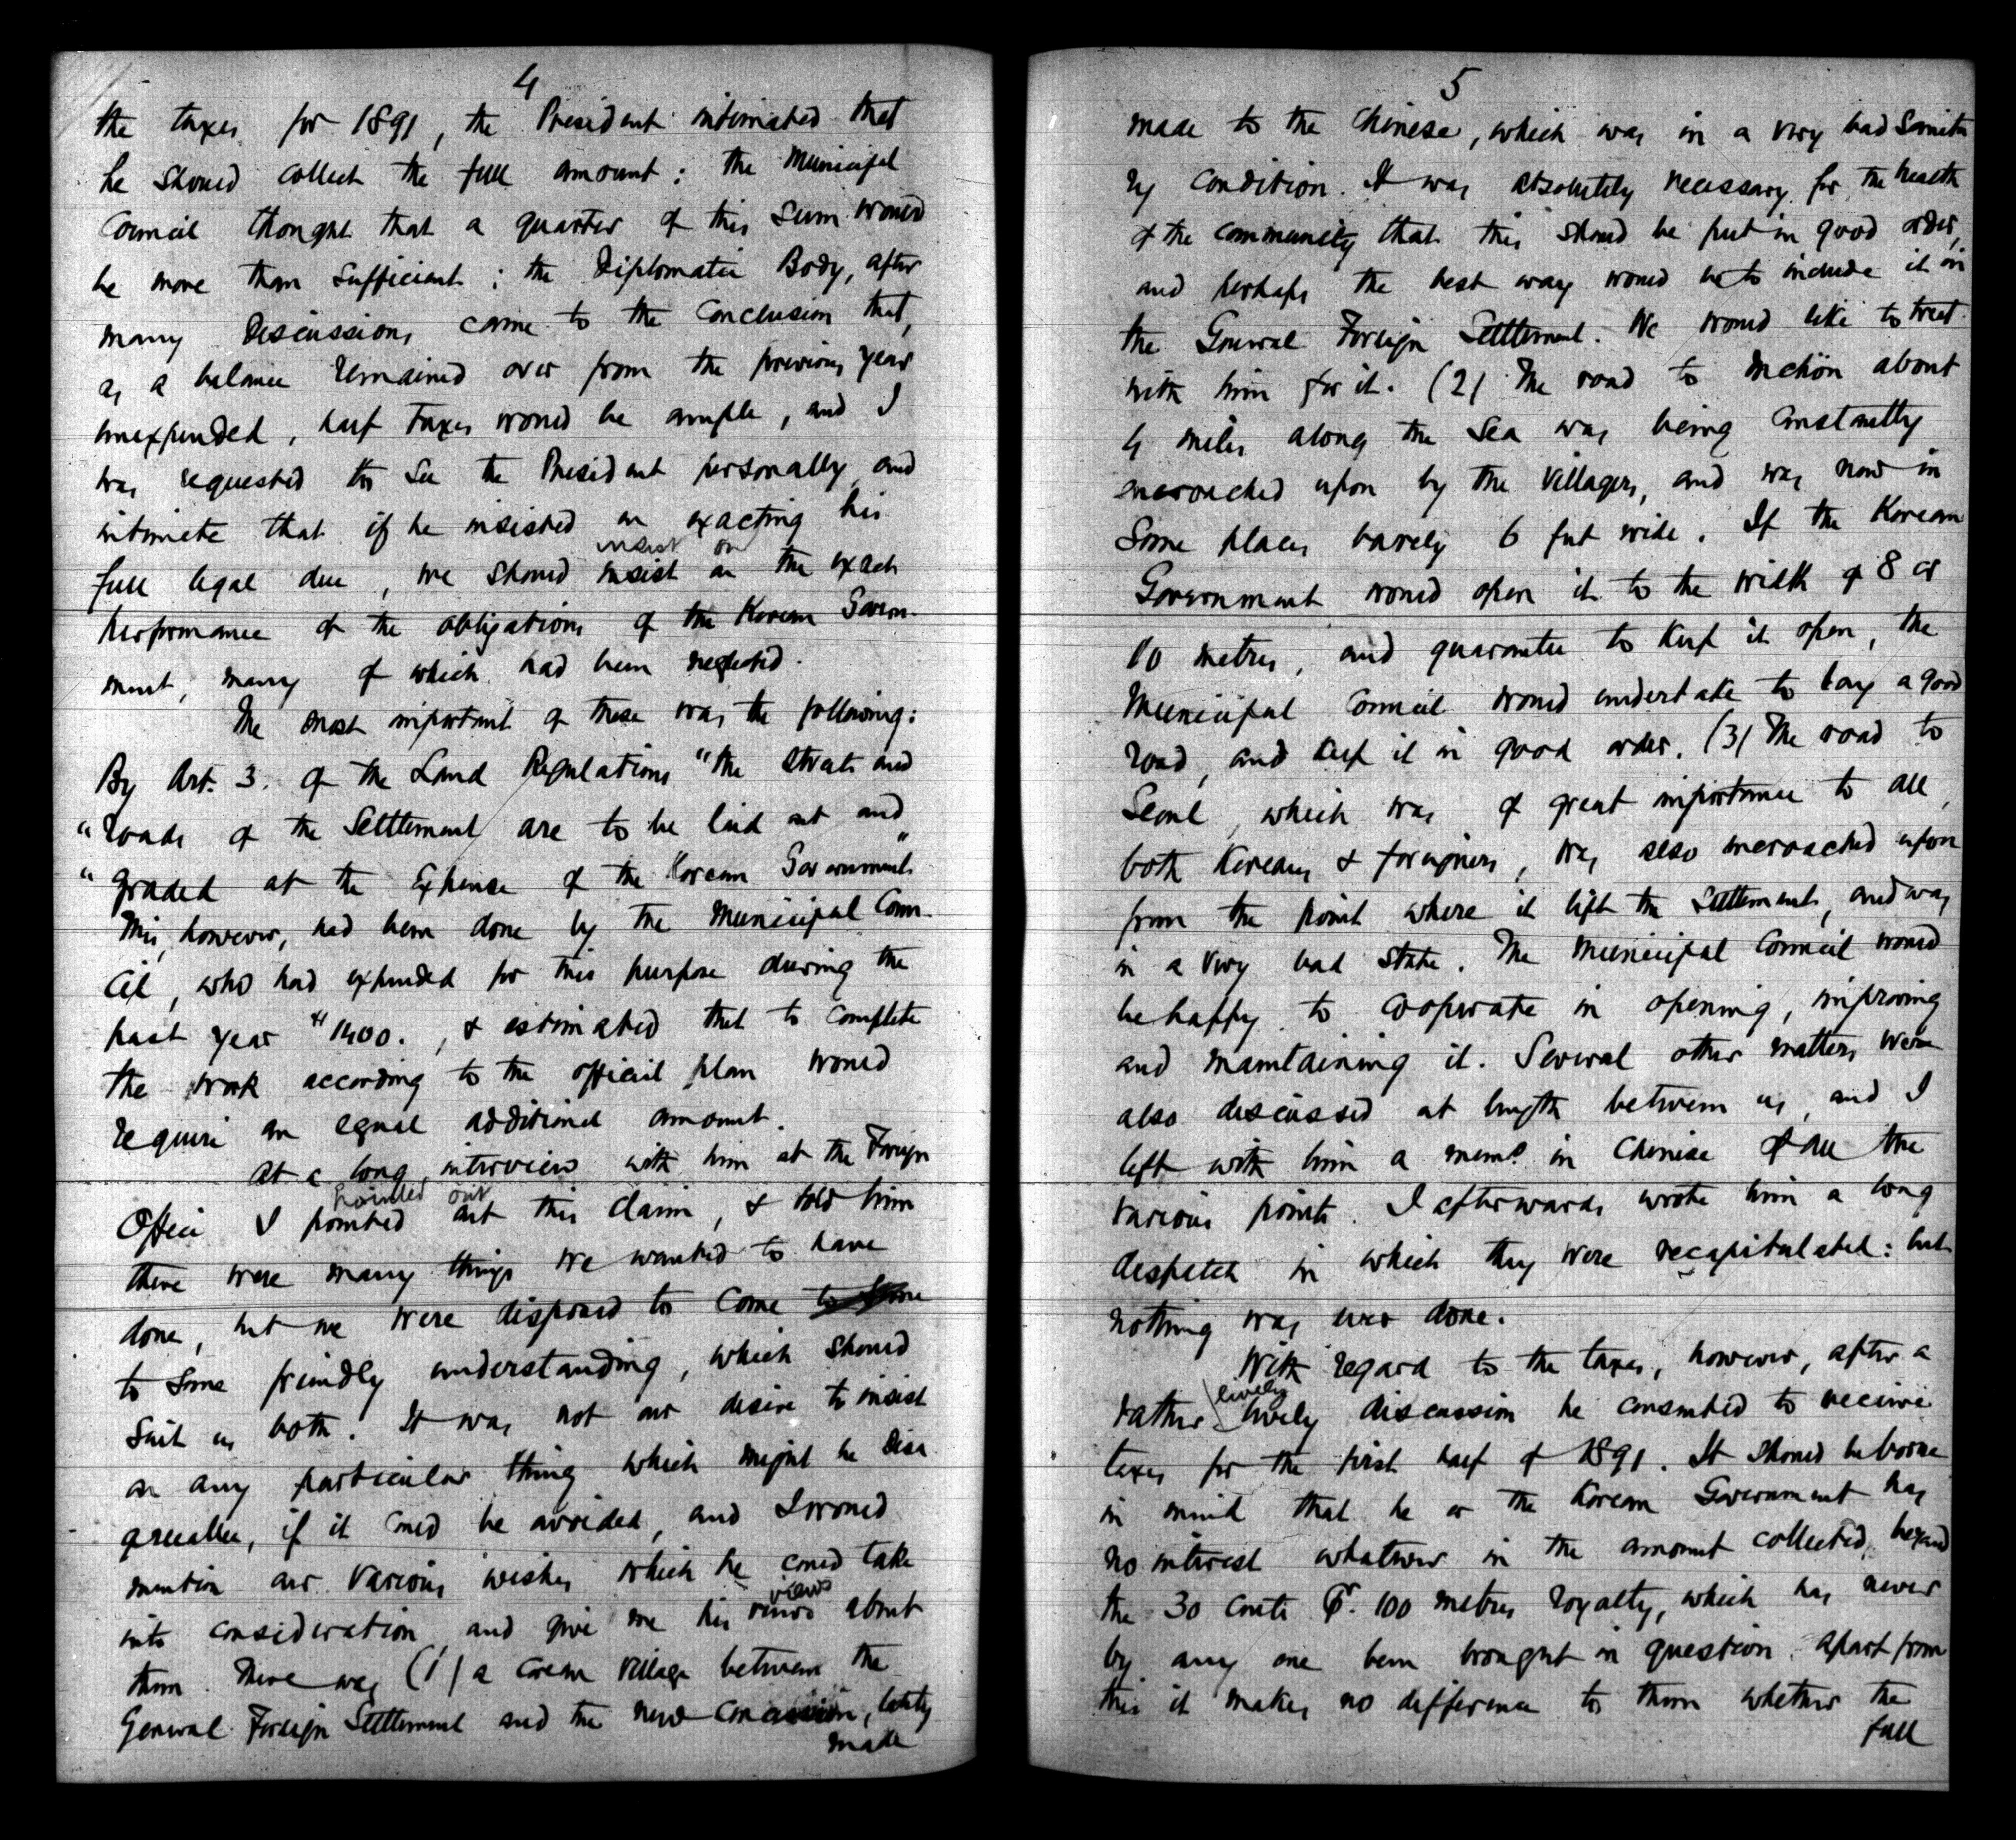 4
the taxes for 1891, the President intimated that
he should collect the full amount: the Municipal
Council thought that a quarter of this sum would
be more than sufficient: the Diplomatic Body, after
many discussions came to the conclusion that,
as a balance remained over from the previous year
unexpended, half taxes would be ample, and I
was requested to see the President personally and
intimate that if he insisted on exacting his
insist on
full legal due, we should insist on the exact
performance of the obligations of the Korean Govern-
ment, many of which had been neglected.
The most important of these was the following:
By Art. 3. of the Land Regulations "the streets and
"roads of the Settlement are to be laid out and
"graded at the Expense of the Korean Government."
This, however, had been done by the Municipal Coun-
cil, who had expended for this purpose during the
past year $1400., & estimated that to complete
the work according to the official plan would
require an equal additional amount.
At a long interview with him at the Foreign
pointed out
Office I pointed out this claim, & told him
there were many things we wanted to have
done, but we were disposed to come to some
to some friendly understanding, which should
suit us both. It was not our desire to insist
on any particular thing which might be disa
greeable, if it could be avoided, and I would
mention our various wishes which he could take
views
into consideration and give me his views about
them. There was (1) a Corean village between the
General Foreign Settlement and the new concession, lately
made
5
made to the Chinese, which was in a very bad sanita
ry condition. It was absolutely necessary for the health
of the community that this should be put in good order,
and perhaps the best way would be to include it in
the General Foreign Settlement. We would like to treat
with him for it. (2) The road to Inchön about
4 miles along the sea was being constantly
encroached upon by the villagers, and was now in
some places barely 6 feet wide. If the Korean
Government would open it to the width of 8 or
10 metres, and guarantee to keep it open, the
Municipal Council would undertake to lay a good
road, and keep it in good order. (3) The road to
Seoul, which was of great importance to all,
both Koreans & foreigners, was also encroached upon
from the point where it left the Settlement, and was
in a very bad state. The Municipal Council would
be happy to cooperate in opening, improving
and maintaining it. Several other matters were
also discussed at length between us, and I
left with him a memo. in Chinese of all the
various points. I afterwards wrote him a long
despatch in which they were recapitulated: but
nothing was ever done.
With regard to the taxes, however, after a
lively
rather lively discussion he consented to receive
taxes for the first half of 1891. It should be borne
in mind that he or the Korean Government has
no interest whatever in the amount collected, beyond
the 30 cents Pr. 100 metres royalty, which has never
by any one been brought in question. Apart from
this it makes no difference to them whether the
full